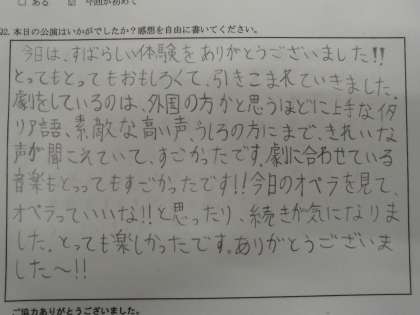 □ ある ☑ 今回が初めて
22. 本日の公演はいかがでしたか?感想を自由に書いてください。
今日は、すばらしい体験をありがとうございました!!
とってもとってもおもしろくて、引きこまれていきました。
劇をしているのは、外国の方かと思うほどに上手なイタ
リア語、素敵な高い声、うしろの方にまで、きれいな
声が聞こえていて、すごかったです。劇に合わせている
音楽もとってもすごかったです!!今日のオペラを見て、
オペラっていいな!!と思ったり、続きが気になりま
した。とっても楽しかったです。ありがとうございま
した〜!!
ご協力ありがとうございました。